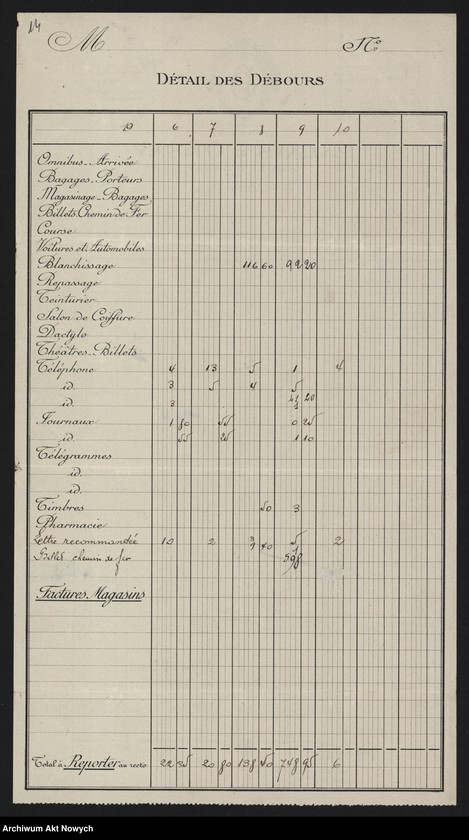 14
M No
DÉTAIL DES DÉBOURS
19 6 7 8 9 10
Omnibus-Arrivée
Bagages-Porteurs
Magasinage-Bagages
Billets Chemin de Fer
Course
Voitures et Automobiles
Blanchissage 116 60 92 20
Repassage
Teinturier
Salon de Coiffure
Dactylo
Théâtres-Billets
Téléphone 4 13 5 1 4
id. 3 5 4 5
id. 3 20
Journaux 1 80 55 0 25
id 55 25 1 10
Télégrammes
id.
id.
Timbres 50 3
Pharmacie
Lettre recommandée 10 2 5 2
Billet chemin de fer 598
Factures Magasins
Total à Reporter au recto 22 35 20 80 138 50 748 95 6
Archiwum Akt Nowych